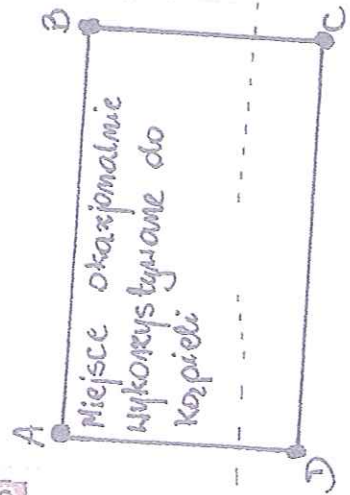 A
B
Miejsce okazjonalnie
wykorzystywane do
kąpieli
D
C